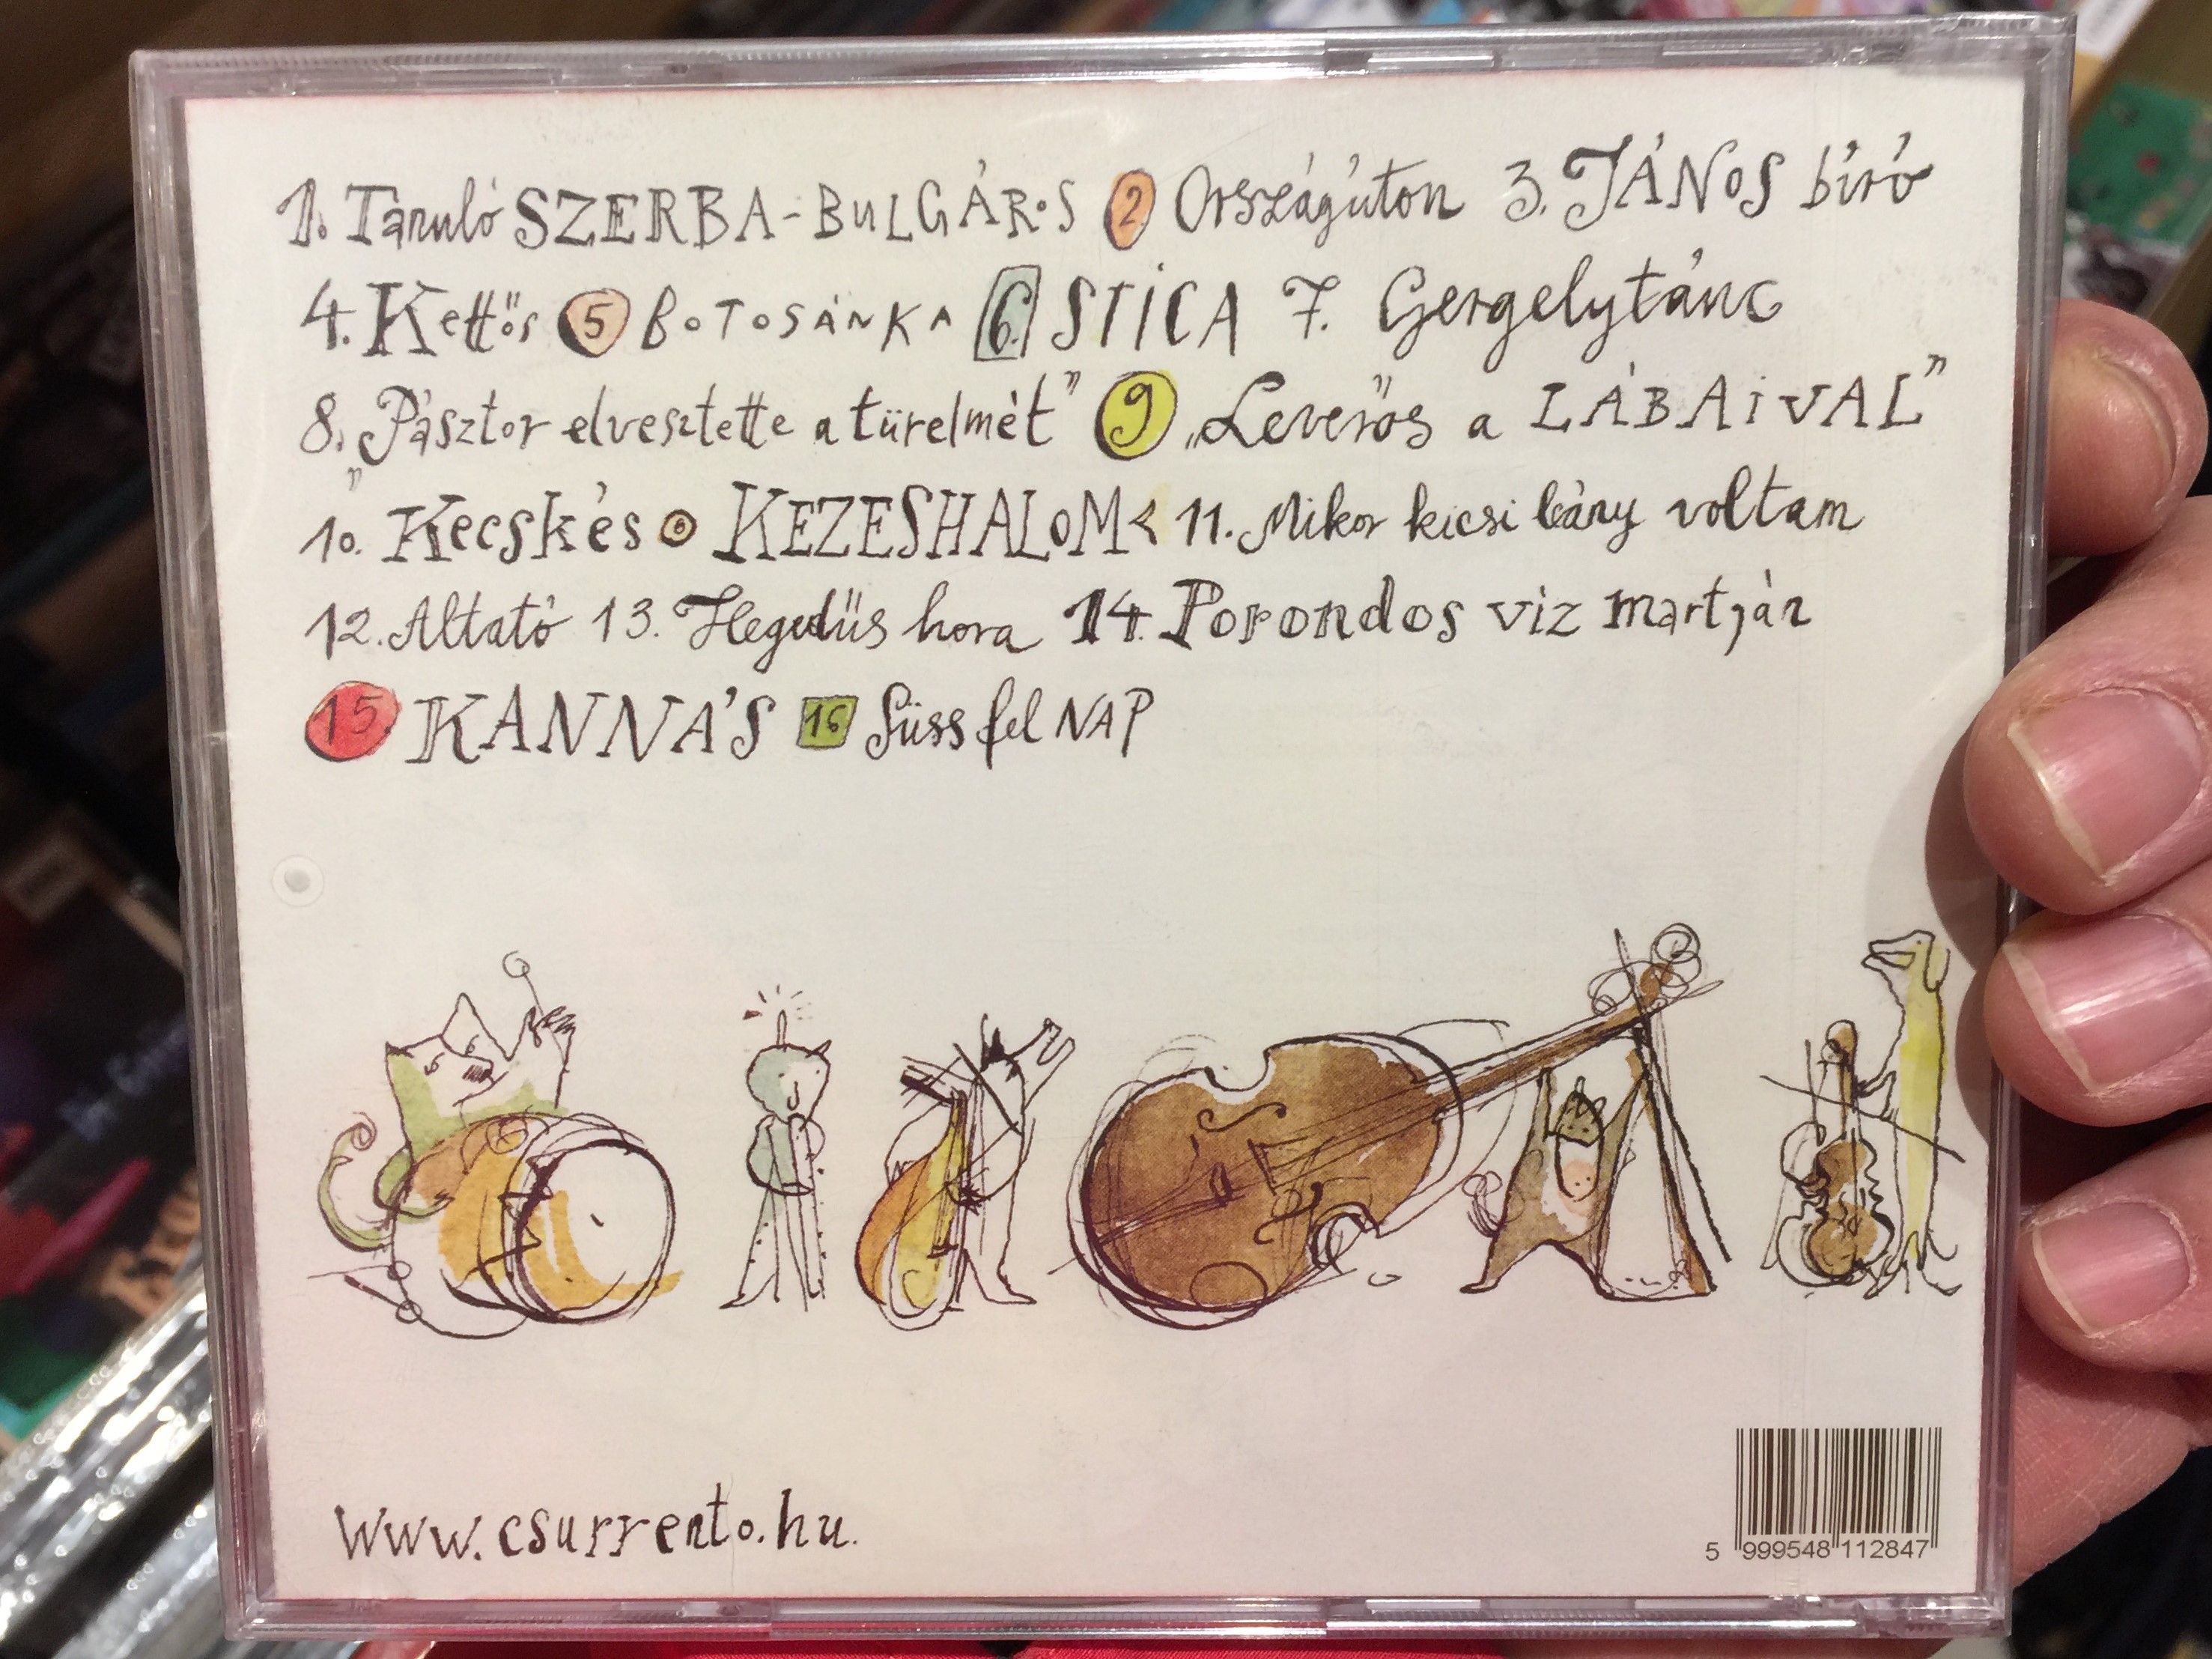 1. Tanuló SZERBA-BULGÁROS 2 Országúton 3. JÁNOS bíró
4. Kettős 5 BOTOSÁNKA 6. STICA 7. Gergelytánc
8. "Pásztor elvesztette a türelmét" 9 „Leverős a LÁBAIVAL”
10. Kecskés KEZESHALOM< 11. Mikor kicsi leány voltam
12. Altató 13. Hegedűs hora 14. Porondos viz martján
15 KANNÁS 16 Süss fel NAP
www.csurrento.hu.
5 999548 112847